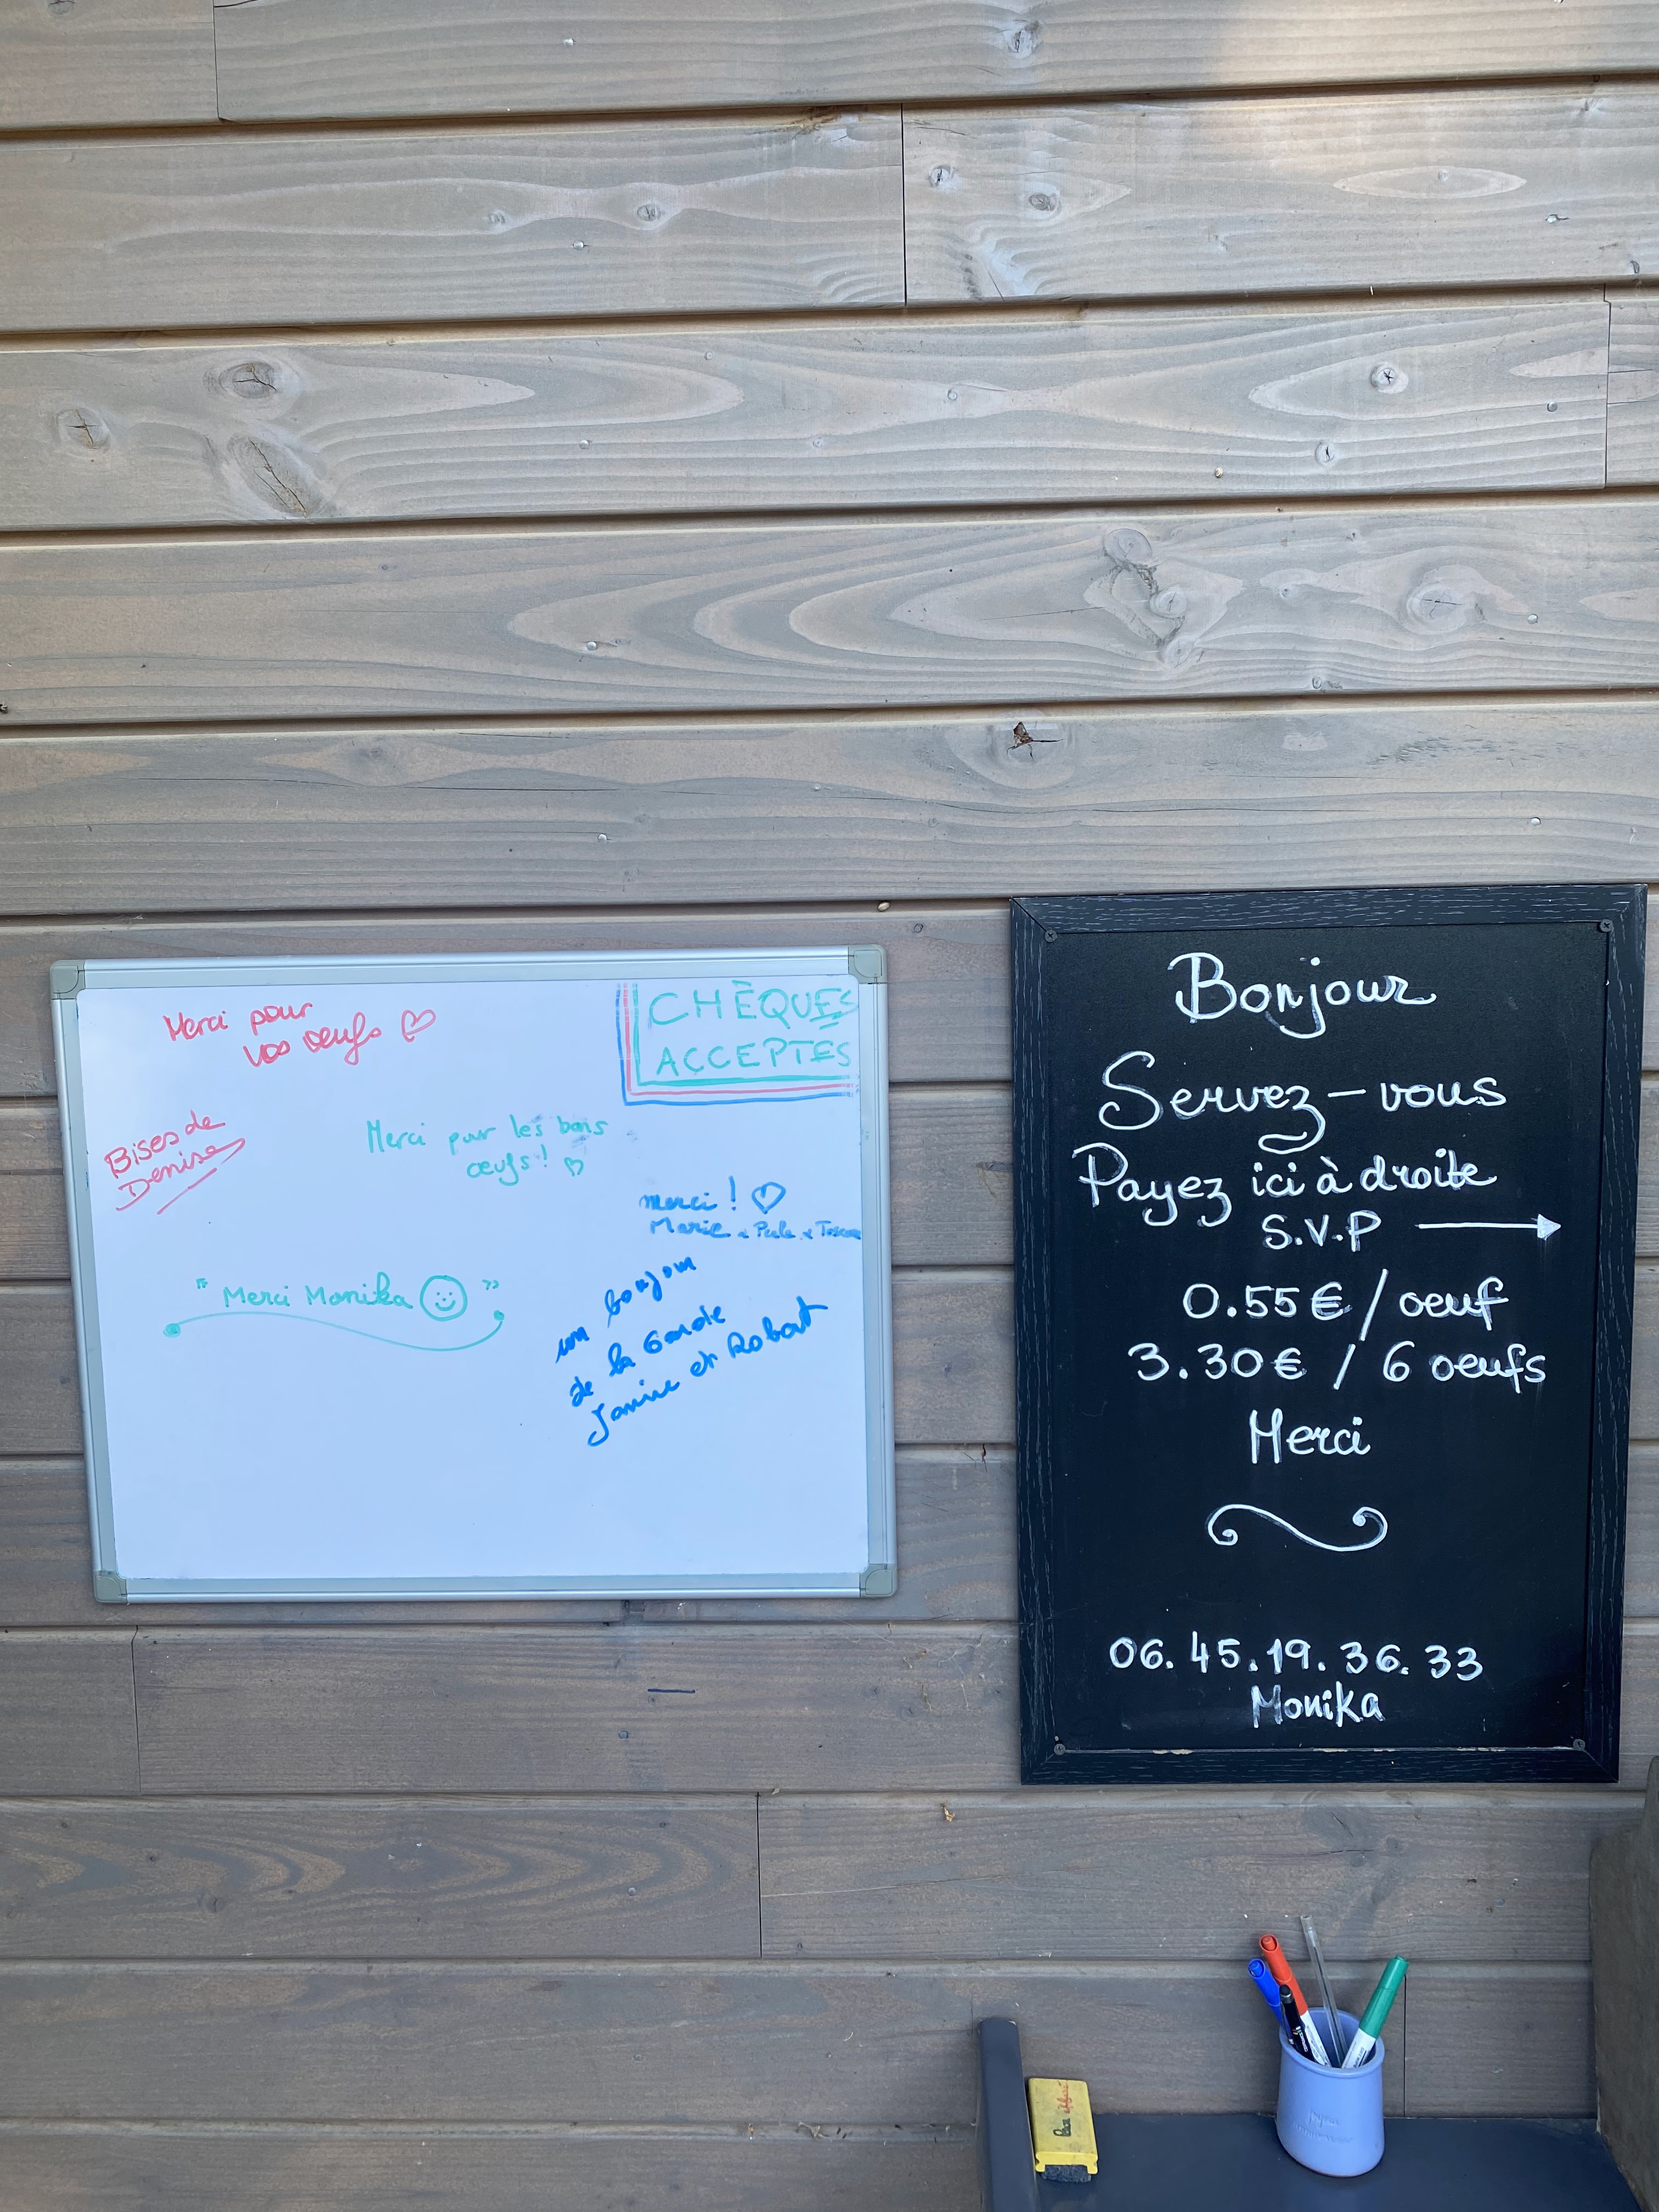 Merci pour
vos oeufs
CHÈQUES
ACCEPTES
Bises de
Denise
Merci pour les bons
œufs !
merci !
Marie
" Merci Monika "
un bonjour
de la Garde
Janine et Robert
Bonjour
Servez-vous
Payez ici à droite
S.V.P
0.55€ / oeuf
3.30€ / 6 oeufs
Merci
06.45.19.36.33
Monika